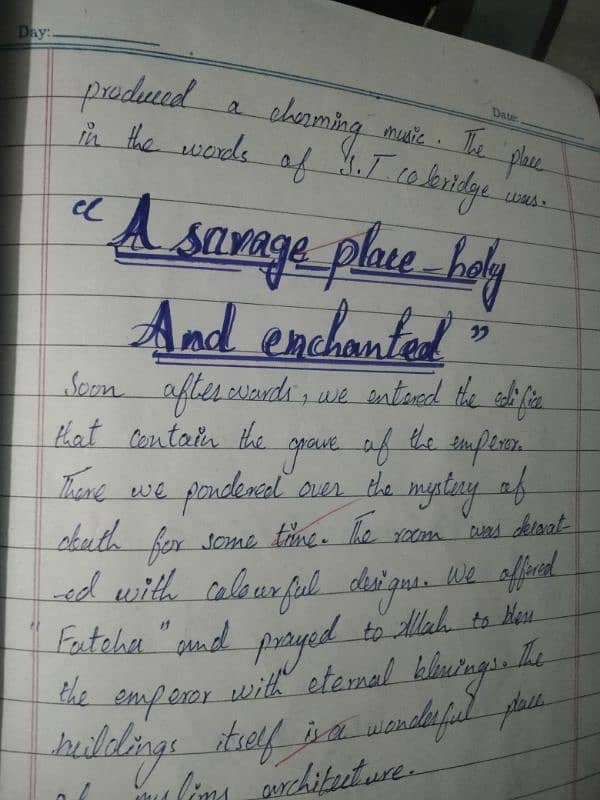 Day:
Date:
produced a charming music. The place
in the words of S.T. coleridge was.
"A savage place - holy
And enchanted"
Soon afterwards, we entered the edifice
that contain the grave of the emperor.
There we pondered over the mystery of
death for some time. The room was decorat-
-ed with colourful designs. We offered
"Fateha" and prayed to Allah to bless
the emperor with eternal blessings. The
buildings itself is a wonderful place
of muslims architecture.